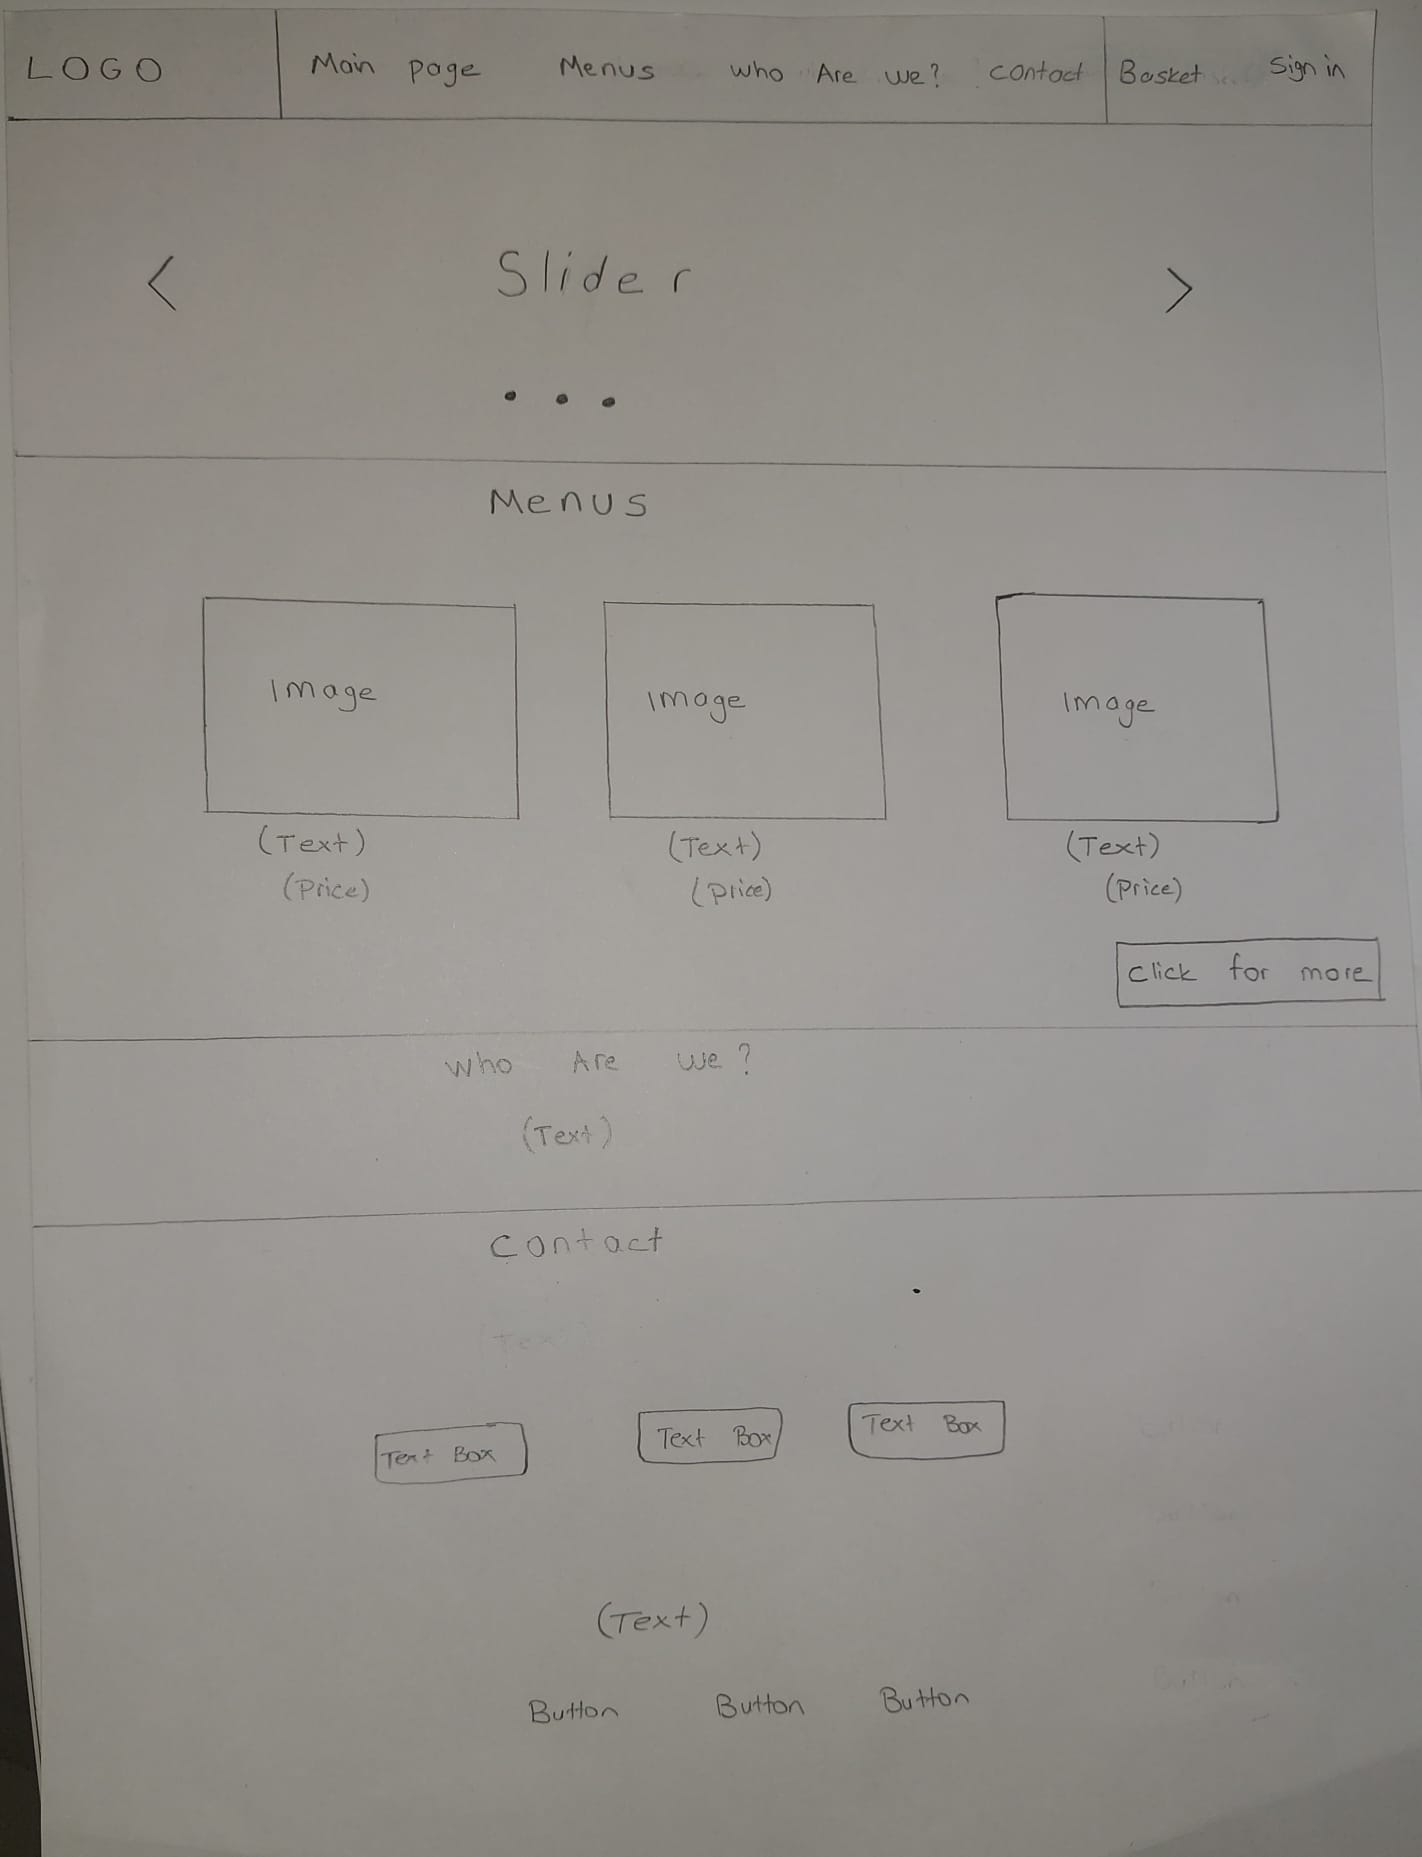 LOGO Main page Menus who Are we? contact Basket Sign in
< Slider >
Menus
Image Image Image
(Text) (Text) (Text)
(Price) (Price) (Price)
click for more
who Are we?
(Text)
contact
Text Box Text Box Text Box
(Text)
Button Button Button